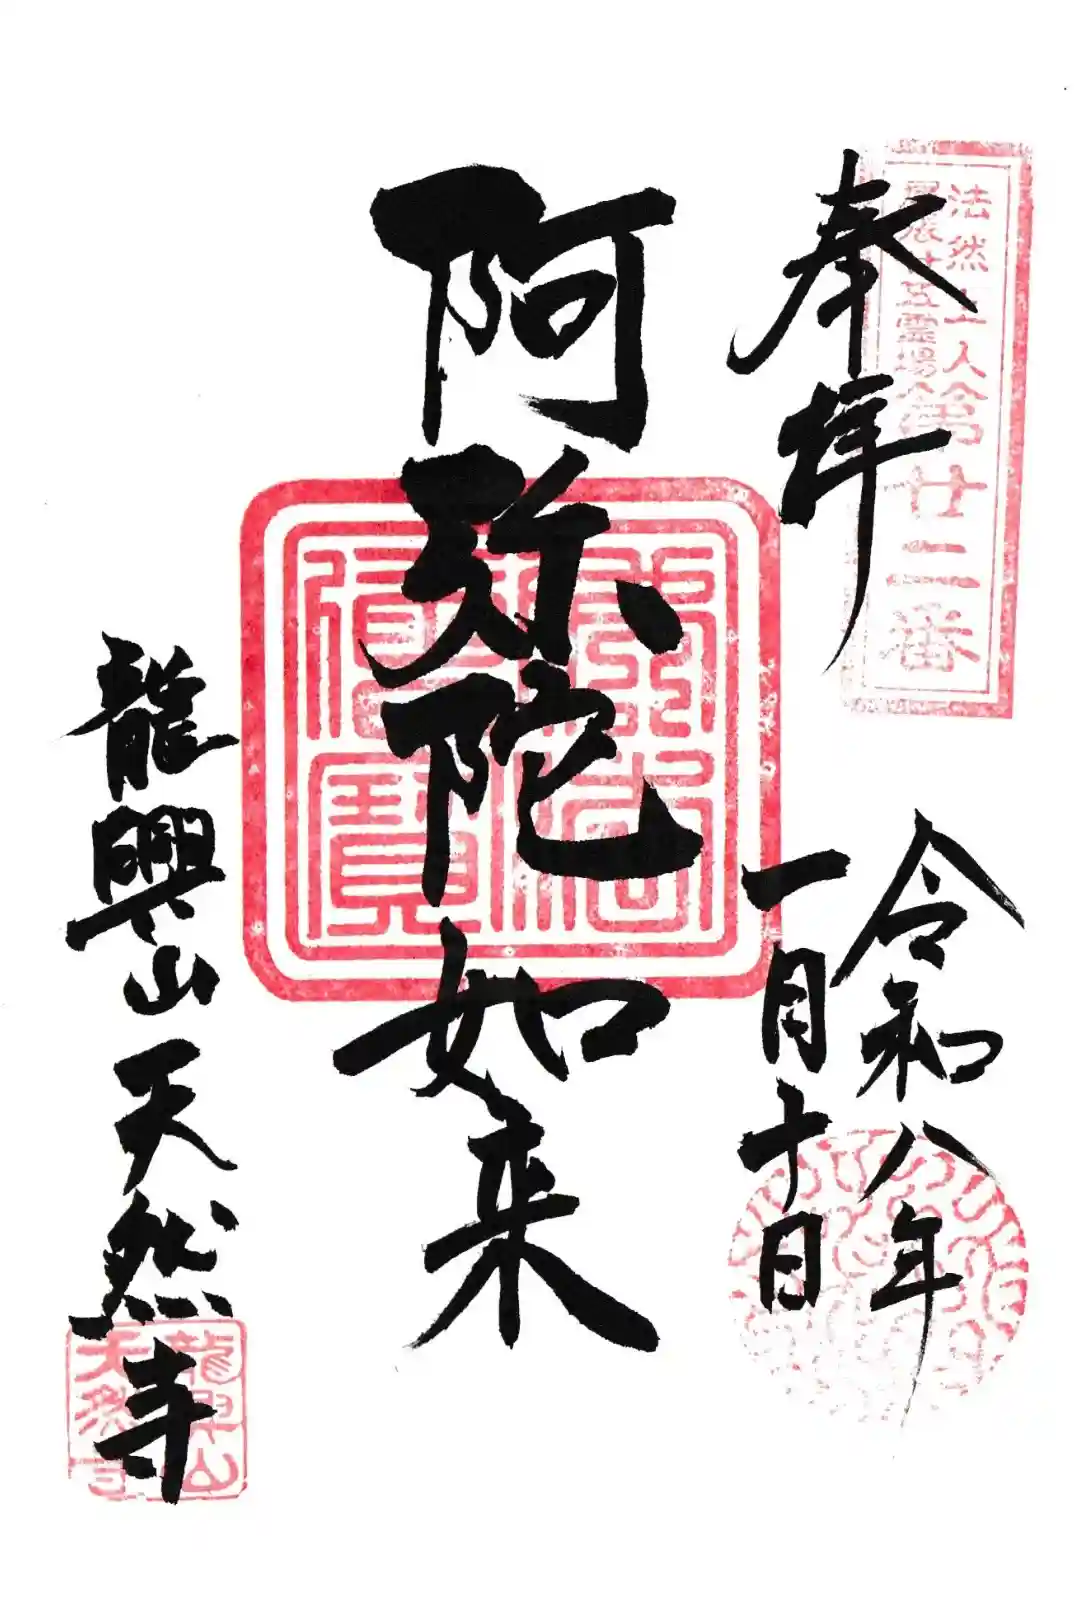 奉拝
法然上人
第廿二番
令和八年
一月十日
阿弥陀如来
龍興山天然寺
龍興山
天然寺